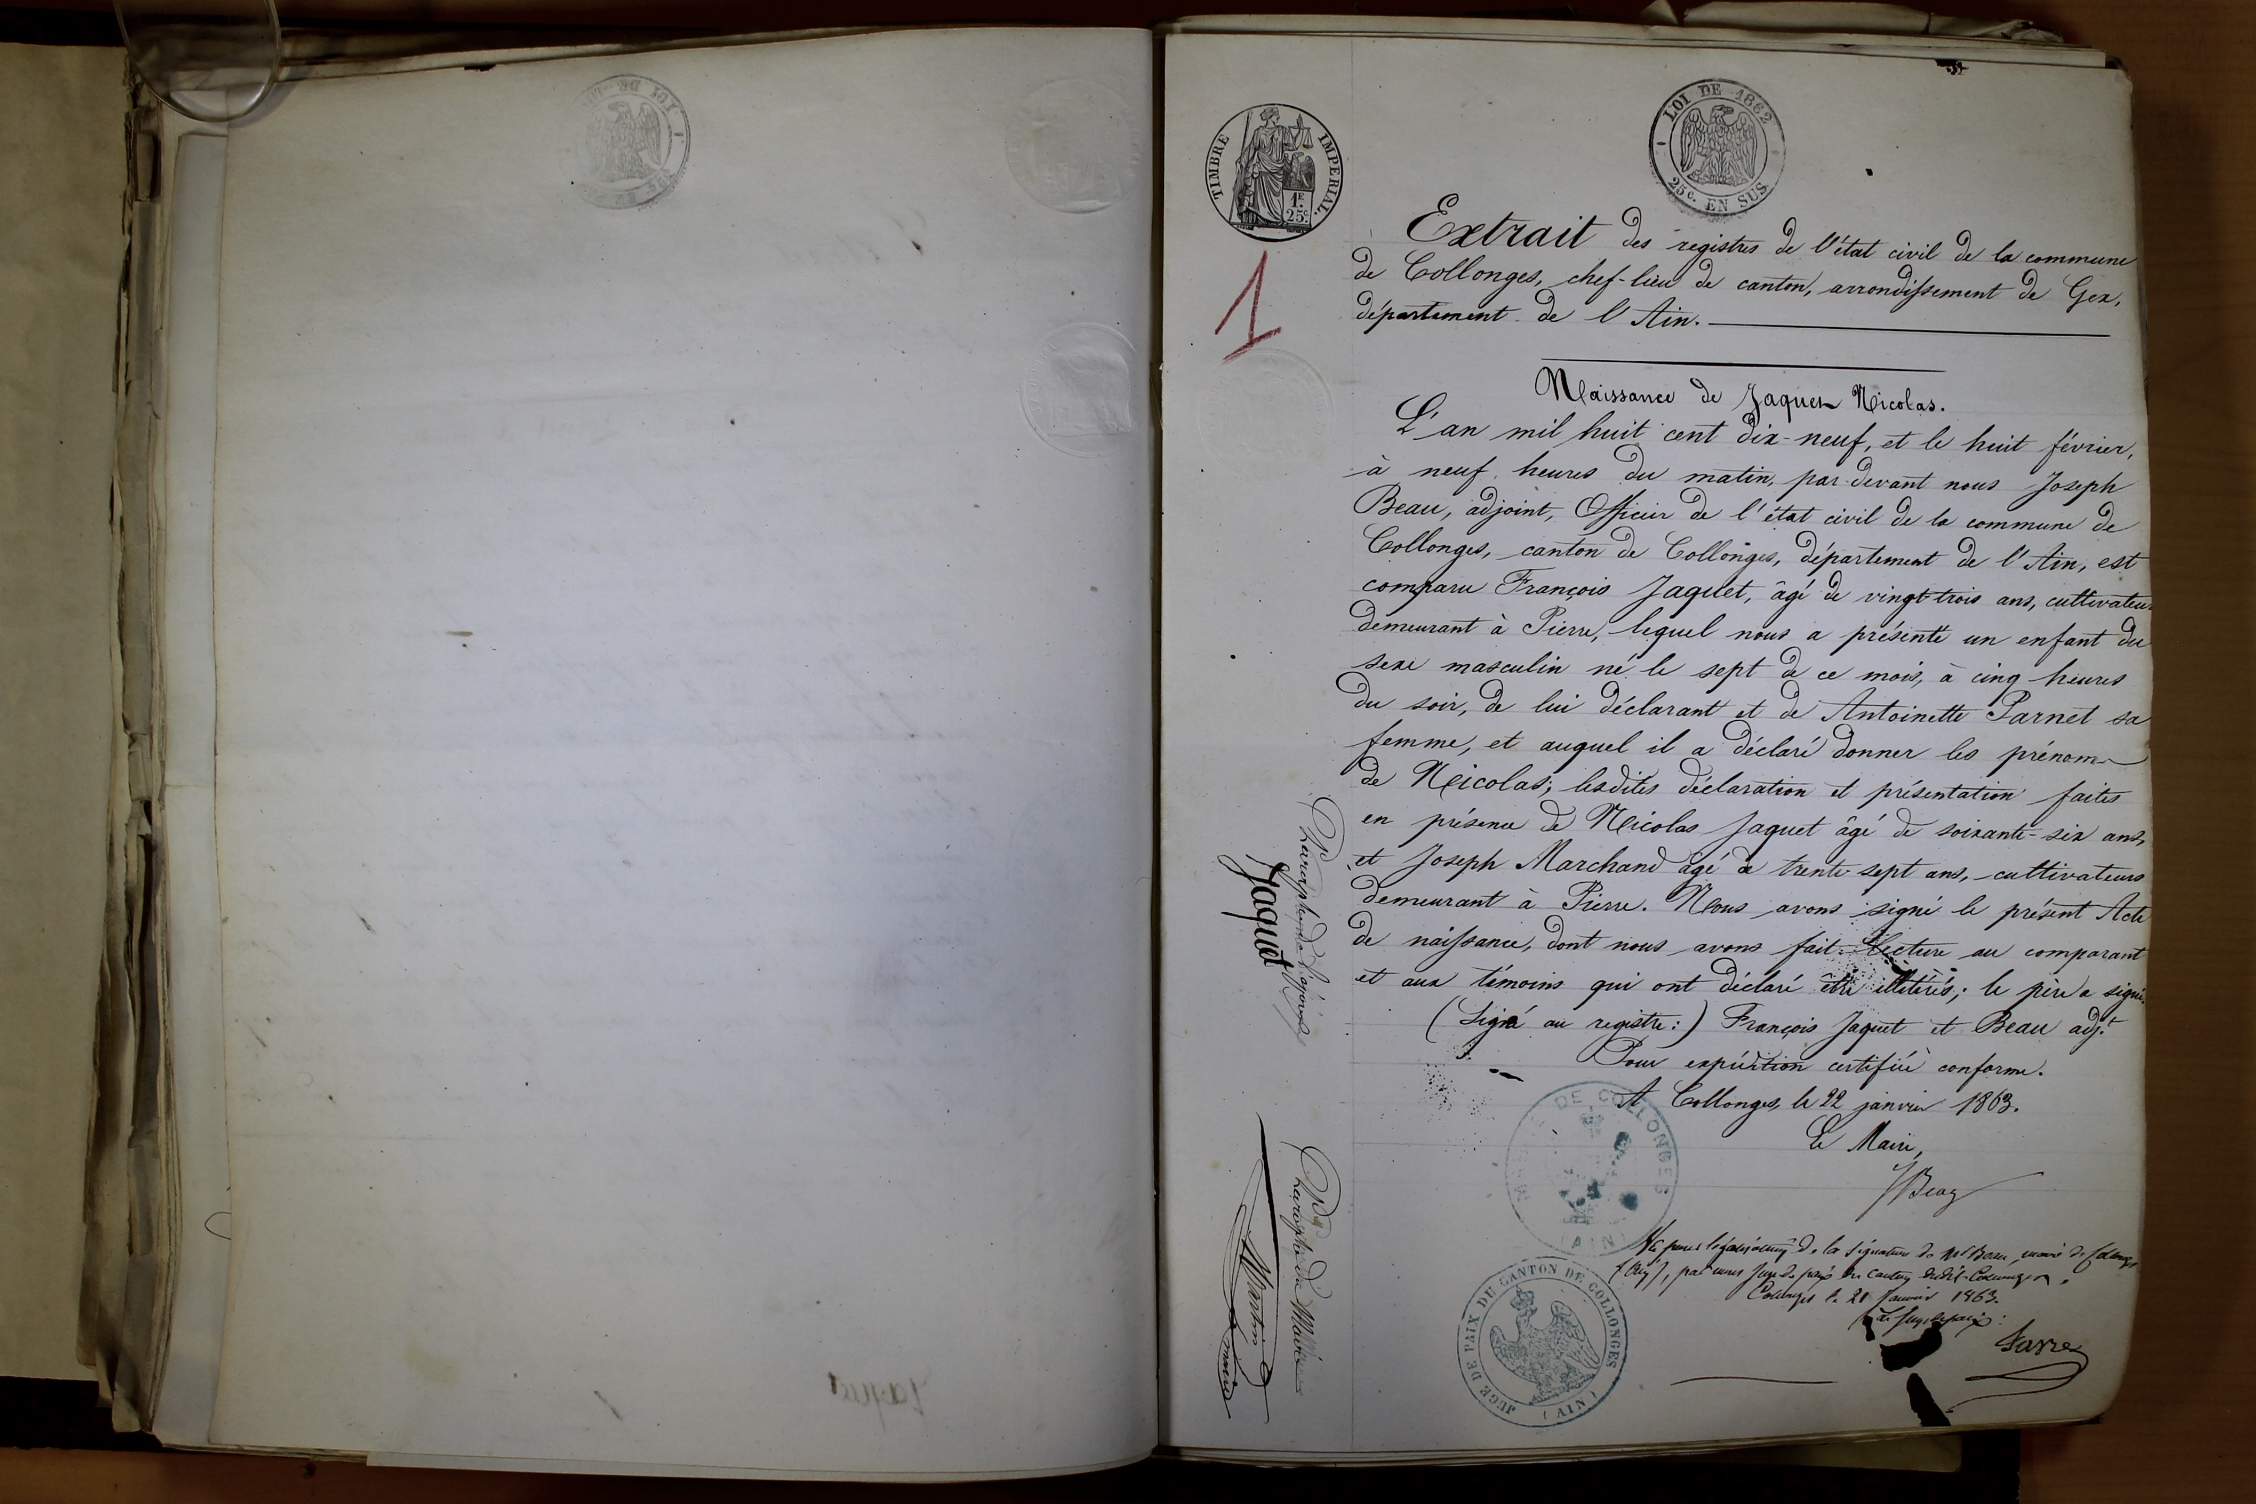 LOI DE 1862
25c. EN SUS
TIMBRE IMPERIAL.
1F.
25c.
1
Extrait des registres de l'état civil de la commune
de Collonges, chef-lieu de canton, arrondissement de Gex,
département de l'Ain.
Naissance de Jaquet Nicolas.
L'an mil huit cent dix-neuf, et le huit février,
à neuf heures du matin, par-devant nous Joseph
Beau, adjoint, Officier de l'état civil de la commune de
Collonges, canton de Collonges, département de l'Ain, est
comparu François Jaquet, âgé de vingt-trois ans, cultivateur
demeurant à Pierre, lequel nous a présenté un enfant du
sexe masculin né le sept de ce mois, à cinq heures
du soir, de lui déclarant et de Antoinette Parnet sa
femme, et auquel il a déclaré donner les prénoms
de Nicolas; lesdites déclaration et présentation faites
en présence de Nicolas Jaquet âgé de soixante-six ans,
et Joseph Marchand âgé de trente-sept ans, cultivateurs
demeurant à Pierre. Nous avons signé le présent Acte
de naissance, dont nous avons fait lecture au comparant
et aux témoins qui ont déclaré être illitérés; le père a signé.
(Signé au registre:) François Jaquet et Beau adjt.
Pour expédition certifiée conforme.
A Collonges, le 22 janvier 1863.
Le Maire,
Beau
Vu pour légalisation de la signature de Mr Beau, maire de Collonges
(Ain), par nous Juge de paix du canton dudit Collonges.
Collonges le 21 Janvier 1863.
Le Juge de paix:
MAIRIE DE COLLONGES
(AIN)
JUGE DE PAIX DU CANTON DE COLLONGES
(AIN)
Jaquet
du Maire
Martin